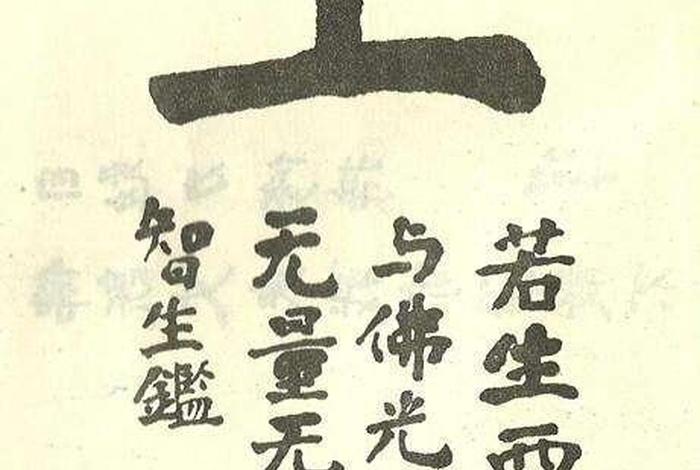 若生西
与佛光
无量无
智生鑑